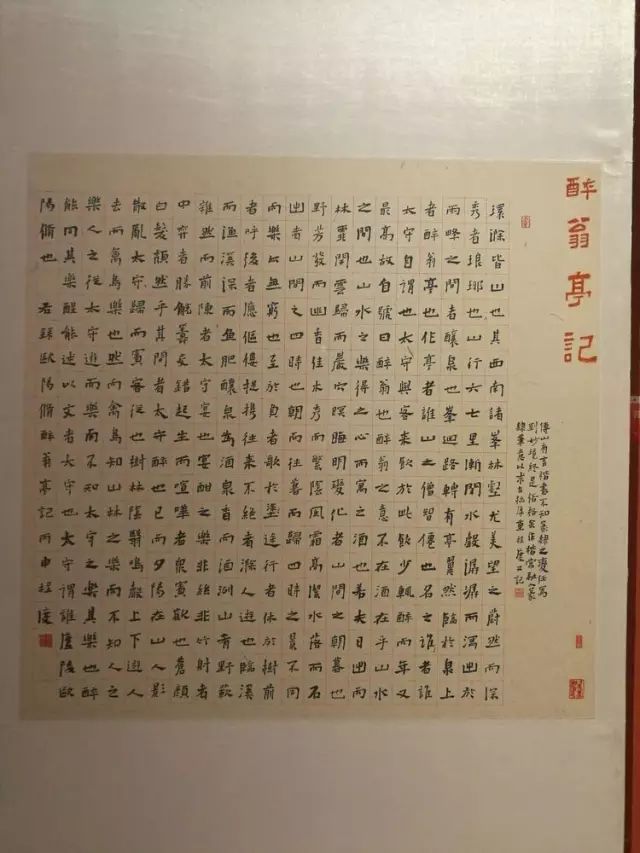 醉翁亭記
傅山有言楷書不知篆隸之變任寫
到妙境終是俗格余作楷常融篆
隸筆意以求古拙厚重程度又記
環滁皆山也其西南諸峯林壑尤美望之蔚然而深
秀者琅瑘也山行六七里漸聞水聲潺潺而瀉出於
兩峰之間者釀泉也峯迴路轉有亭翼然臨於泉上
者醉翁亭也作亭者誰山之僧智僊也名之誰者誰
太守自謂也太守與客來飲於此飲少輒醉而年又
最高故自號曰醉翁也醉翁之意不在酒在乎山水
之間也山水之樂得之心而寓之酒也若夫日出而
林霏開雲歸而巖穴暝晦明變化者山間之朝暮也
野芳發而幽香佳木秀而繁陰風霜高潔水落而石
出者山間之四時也朝而往暮而歸四時之景不同
而樂亦無窮也至於負者歌於塗途行者休於樹前
者呼後者應傴僂提攜往來不絕者滁人遊也臨溪
而漁溪深而魚肥釀泉為酒泉香而酒洌山肴野蔌
雜然而前陳者太守宴也宴酣之樂非絲非竹射者
中弈者勝觥籌交錯起坐而喧嘩者衆賓歡也蒼顏
白髮頹然乎其間者太守醉也已而夕陽在山人影
散亂太守歸而賓客從也樹林陰翳鳴聲上下遊人
去而禽鳥樂也然而禽鳥知山林之樂而不知人之
樂人之從太守遊而樂而不知太守之樂其樂也醉
能同其樂醒能述以文者太守也太守謂誰廬陵歐
陽脩也 右録歐陽脩醉翁亭記丙申程度